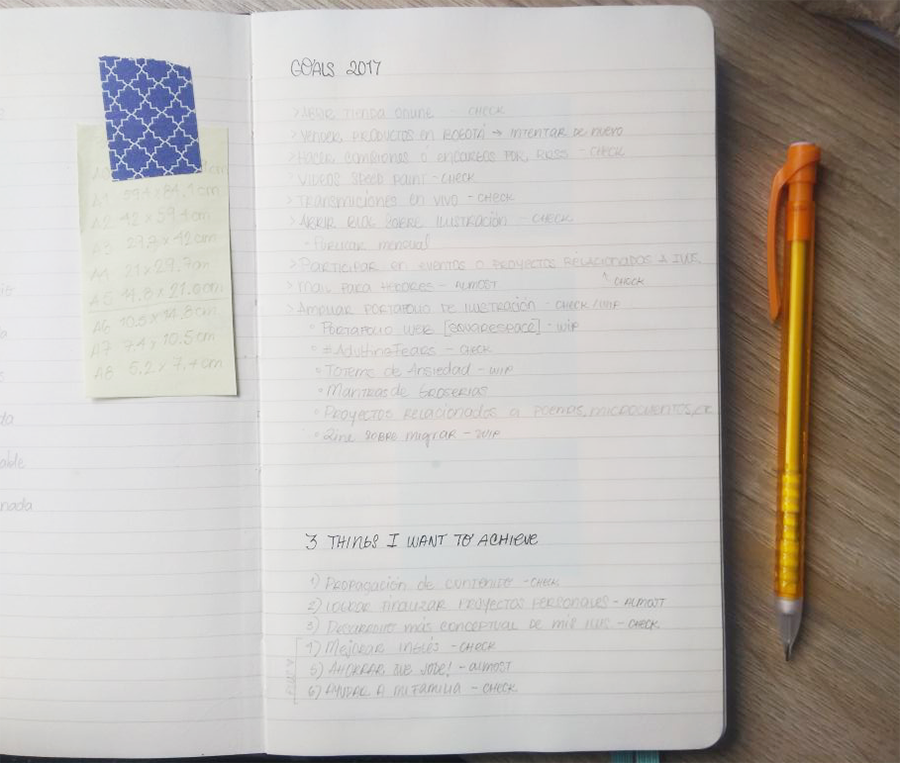 able
nada
A1 59.4 x 84.1 cm
A2 42 x 59.4 cm
A3 29.7 x 42 cm
A4 21 x 29.7 cm
A5 14.8 x 21.0 cm
A6 10.5 x 14.8 cm
A7 7.4 x 10.5 cm
A8 5.2 x 7.4 cm
GOALS 2017
> ABRIR TIENDA ONLINE - CHECK
> VENDER PRODUCTOS EN BOGOTÁ → INTENTAR DE NUEVO
> HACER COMISIONES Ó ENCARGOS POR RRSS - CHECK
> VIDEOS SPEED PAINT - CHECK
> TRANSMICIONES EN VIVO - CHECK
> ABRIR BLOG SOBRE ILUSTRACIÓN - CHECK
PUBLICAR MENSUAL
> PARTICIPAR EN EVENTOS O PROYECTOS RELACIONADOS A ILUS.
CHECK
> MAIL PARA - ALMOST
> AMPLIAR PORTAFOLIO DE ILUSTRACIÓN - CHECK / WIP
PORTAFOLIO WEB [SQUARESPACE] - WIP
#AdultingFears - CHECK
TOTEMS DE ANSIEDAD - WIP
MANTRAS DE GROSERIAS
PROYECTOS RELACIONADOS A POEMAS, MICROCUENTOS,
ZINE SOBRE MIGRAR - WIP
3 THINGS I WANT TO ACHIEVE
1) PROPAGACIÓN DE CONTENIDO - CHECK
2) LOGRAR FINALIZAR PROYECTOS PERSONALES - ALMOST
3) DESARROLLO MÁS CONCEPTUAL DE MIS ILUS - CHECK
4) MEJORAR INGLÉS - CHECK
5) AHORRAR JODE! - ALMOST
6) AYUDAR A MI FAMILIA - CHECK